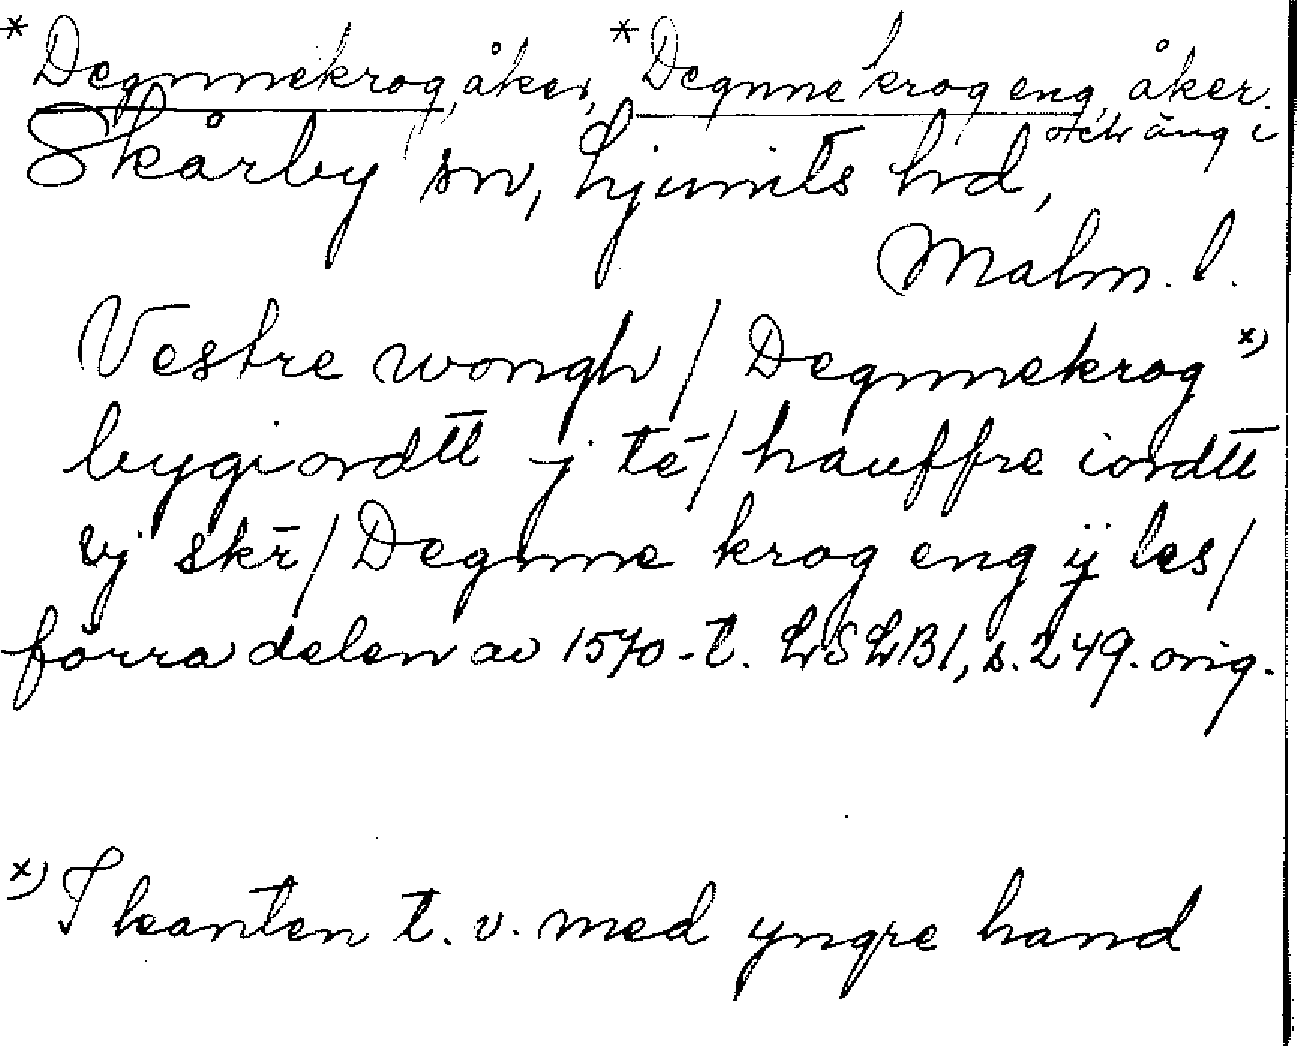 * Degnnekrog, åker, * Degnne krog eng, åker.
och äng i
Skårby sn, Ljunits hd,
Malm. l.
Vestre wongh / Degnnekrog x)
bygiordtt j tē / hauffre iordtt
vj skr̄ / Degnne krog eng ij les /
förra delen av 1570-t. LSLB1, s. 249. orig.
x) I kanten t. v. med yngre hand